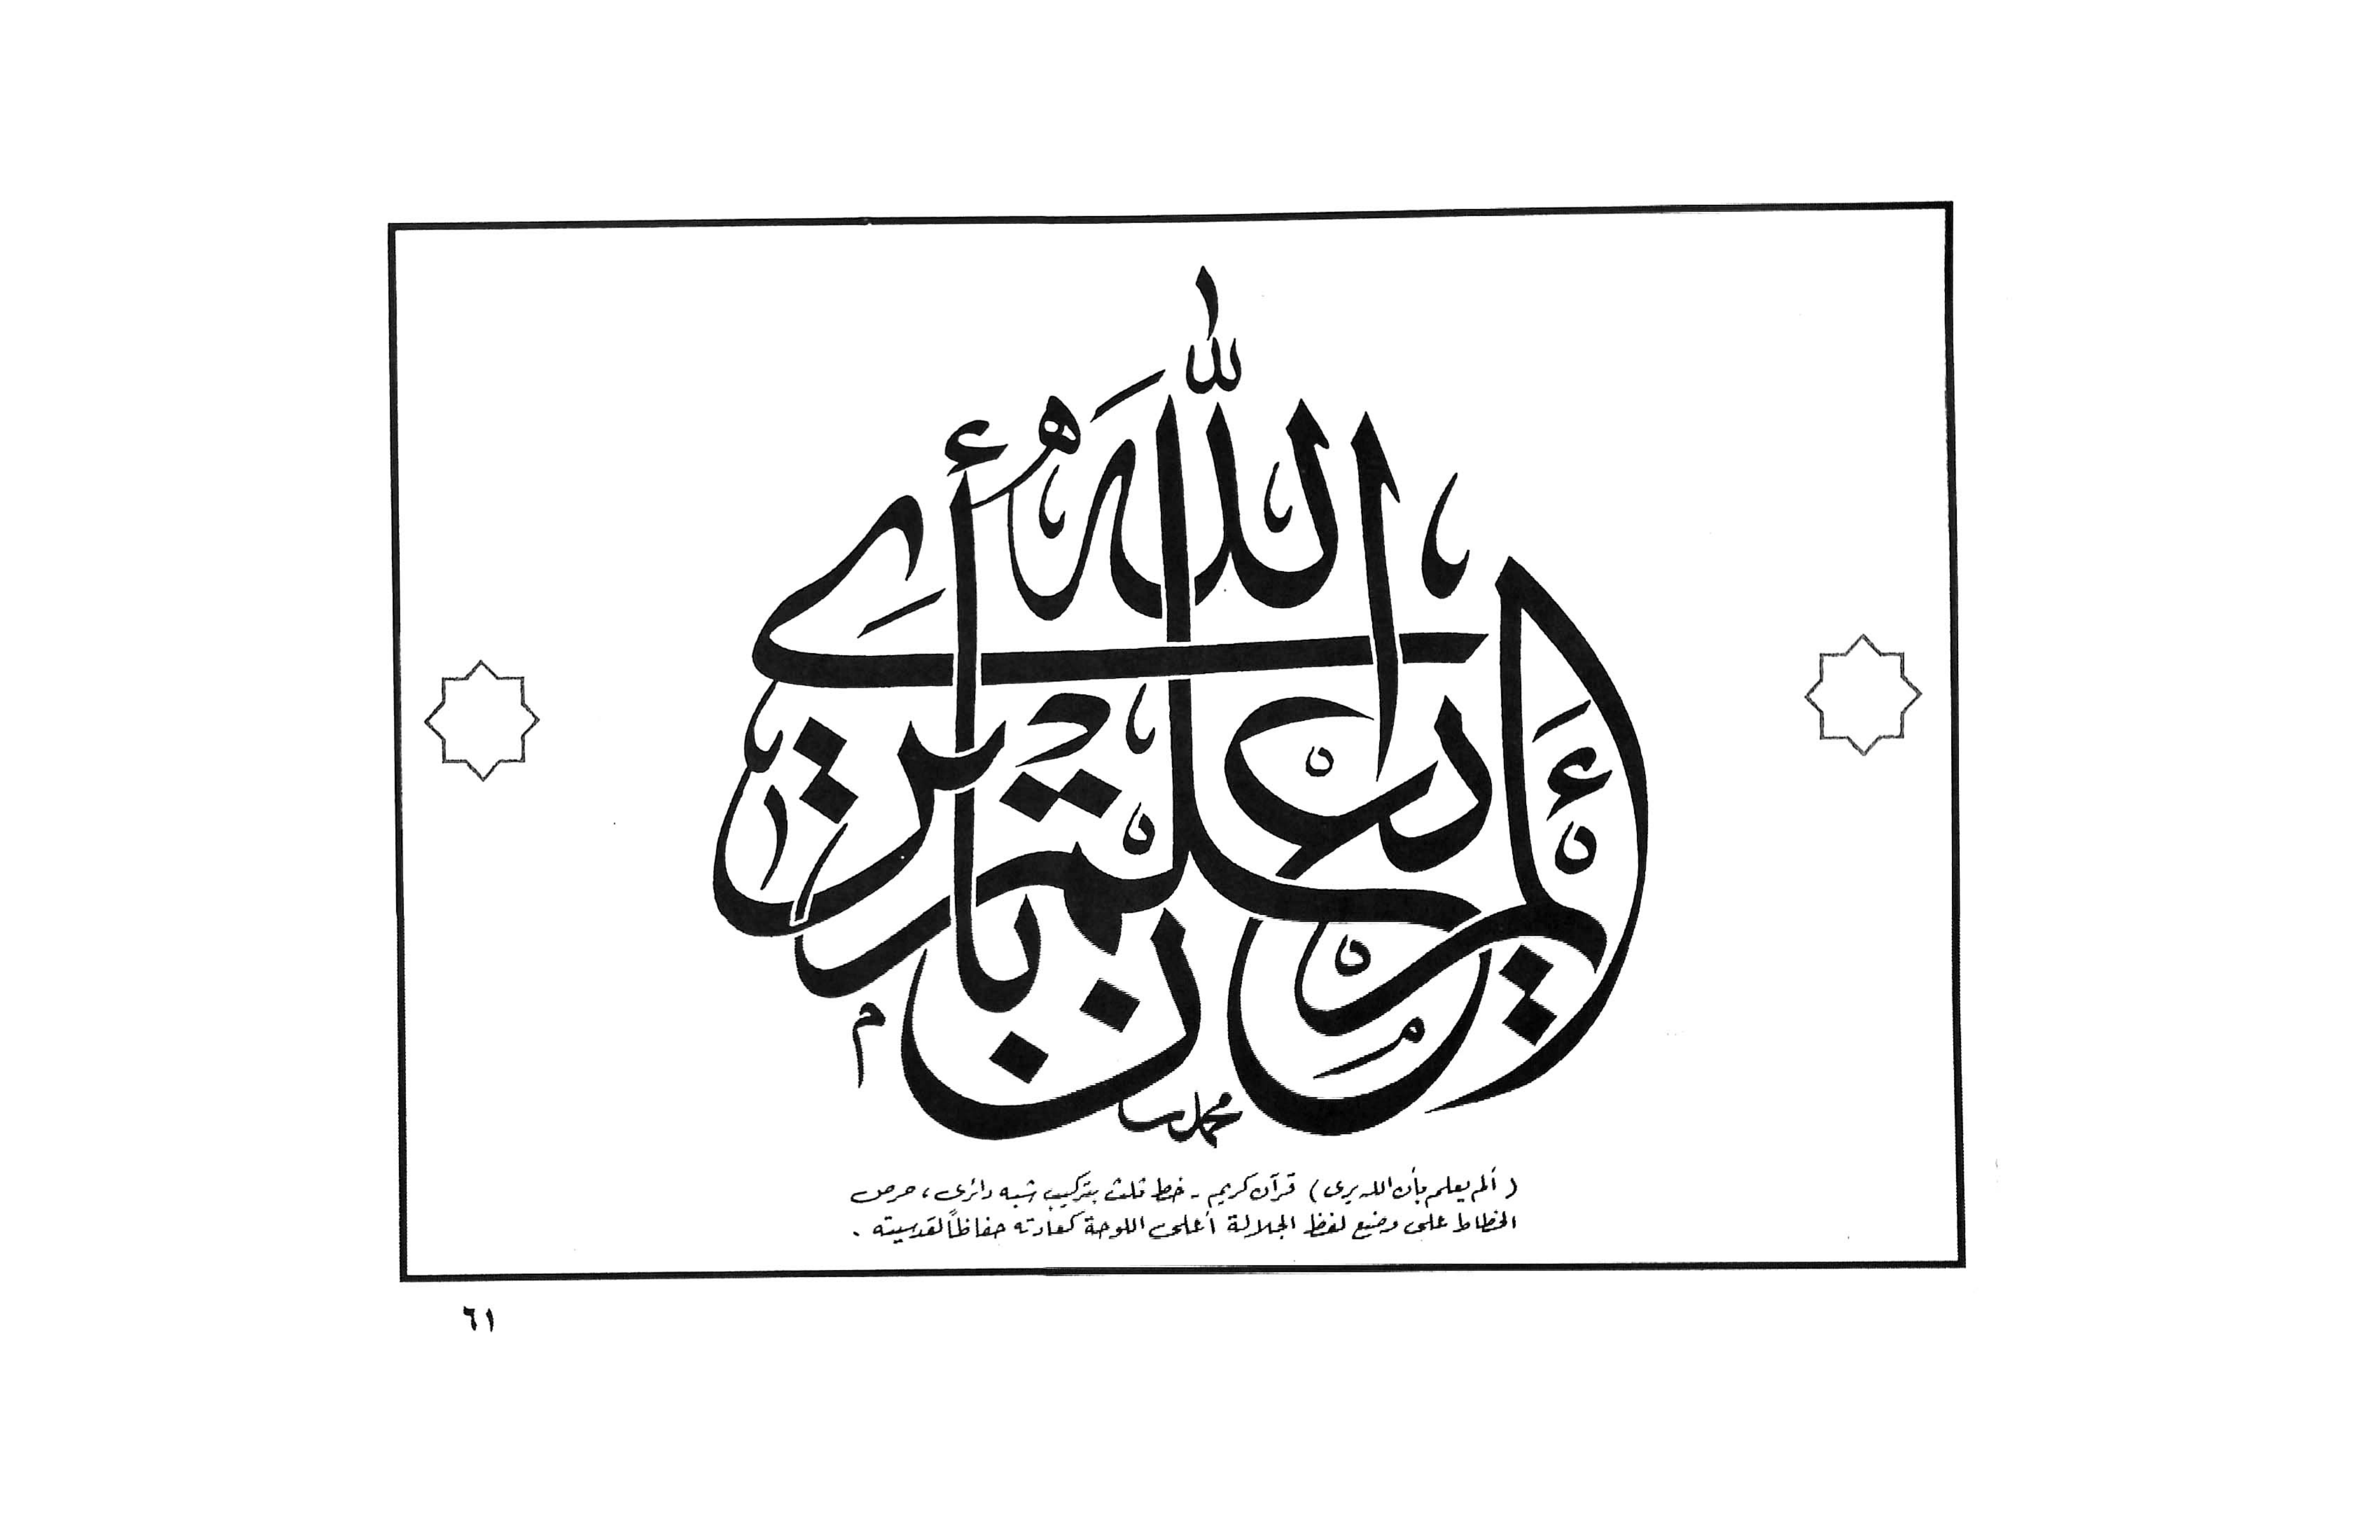 ألم يعلم بأن الله يرى
محمد
(ألم يعلم بأن الله يرى) قرآن كريم - خط ثلث بتركيب شبه دائرى، حرص
الخطاط على وضع لفظ الجلالة أعلى اللوحة كعادته حفاظاً لقدسيته.
٦١